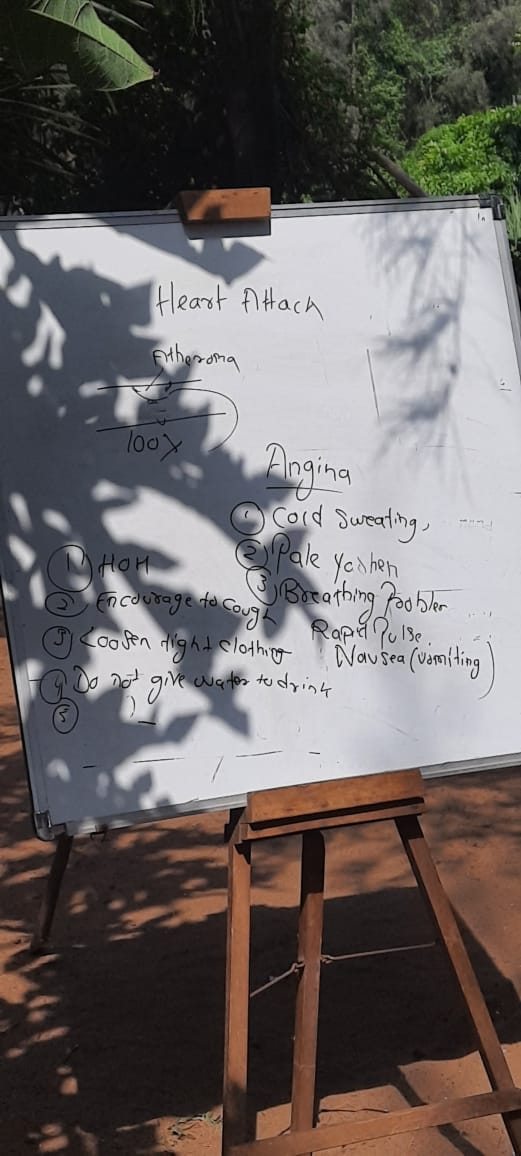 Heart Attack
Atheroma
100%
Angina
① Cold Sweating,
② Pale
③ Breathing Problem
Rapid Pulse
Nausea (vomiting)
① HOH
② Encourage to cough
③ Loosen tight clothing
④ Do not give water to drink
⑤